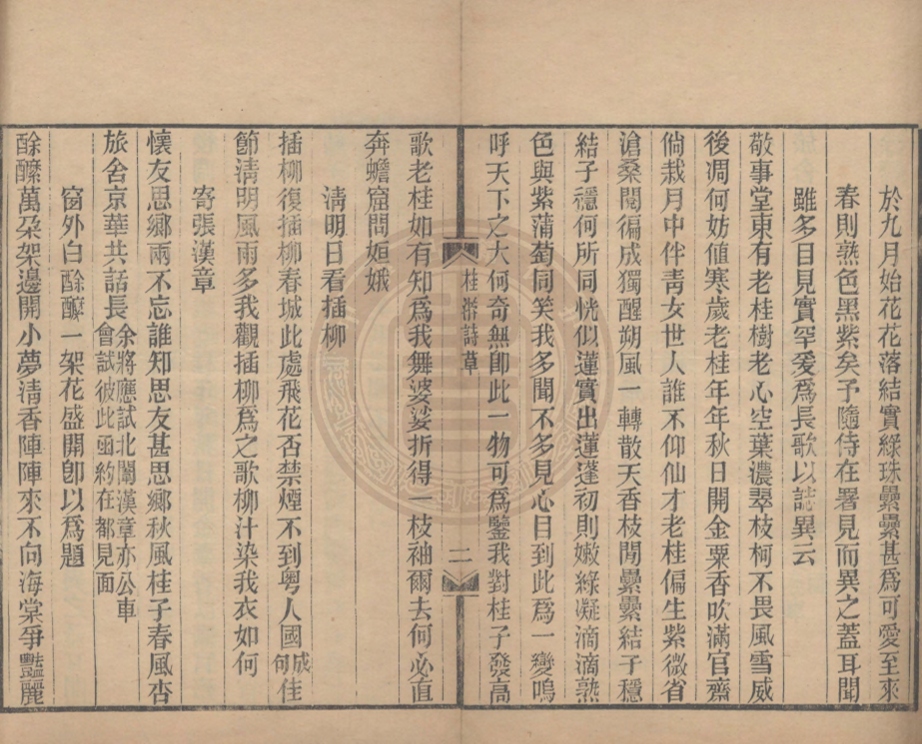 於九月始花花落結實綠珠纍纍甚爲可愛至來
春則熟色黑紫矣予隨侍在署見而異之蓋耳聞
雖多目見實罕爰爲長歌以誌異云
敬事堂東有老桂樹老心空葉濃翠枝柯不畏風雪威
後凋何妨値寒歲老桂年年秋日開金粟香吹滿官齋
倘栽月中伴靑女世人誰不仰仙才老桂偏生紫微省
滄桑閱徧成獨醒朔風一轉散天香枝閒纍纍結子穩
結子穩何所同恍似蓮實出蓮蓬初則嫩綠凝滴滴熟
色與紫蒲萄同笑我多聞不多見心目到此爲一變嗚
呼天下之大何奇無卽此一物可爲鑒我對桂子發高
桂 詩草
二
歌老桂如有知爲我舞婆娑折得一枝袖爾去何必直
奔蟾窟問姮娥
淸明日看插柳
插柳復插柳春城此處飛花否禁煙不到粤人國成何佳
節淸明風雨多我觀插柳爲之歌柳汁染我衣如何
寄張漢章
懷友思鄉兩不忘誰知思友甚思鄉秋風桂子春風杏
旅舍京華共話長余將應試北闈漢章亦公車
會試彼此函約在都見面
窗外白酴醾一架花盛開卽以爲題
酴醾萬朶架邊開小夢淸香陣陣來不向海棠爭豔麗